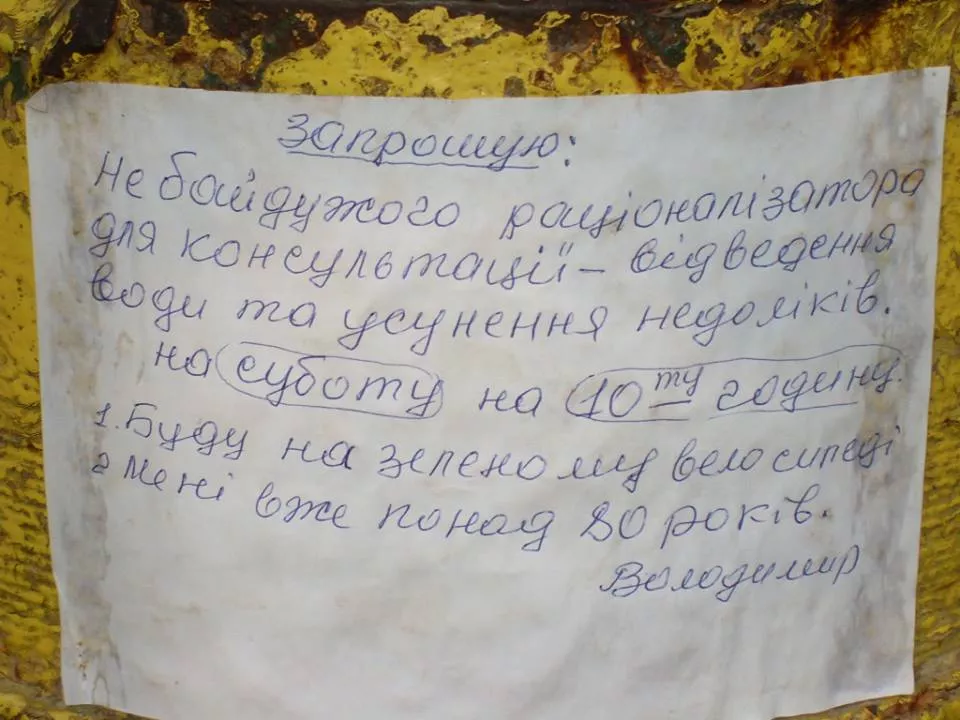 Запрошую:
Не байдужого раціоналізатора
для консультації – відведення
води та усунення недоліків.
на суботу на 10ту годину.
1. Буду на зеленому велосипеді
2 Мені вже понад 80 років.
Володимир